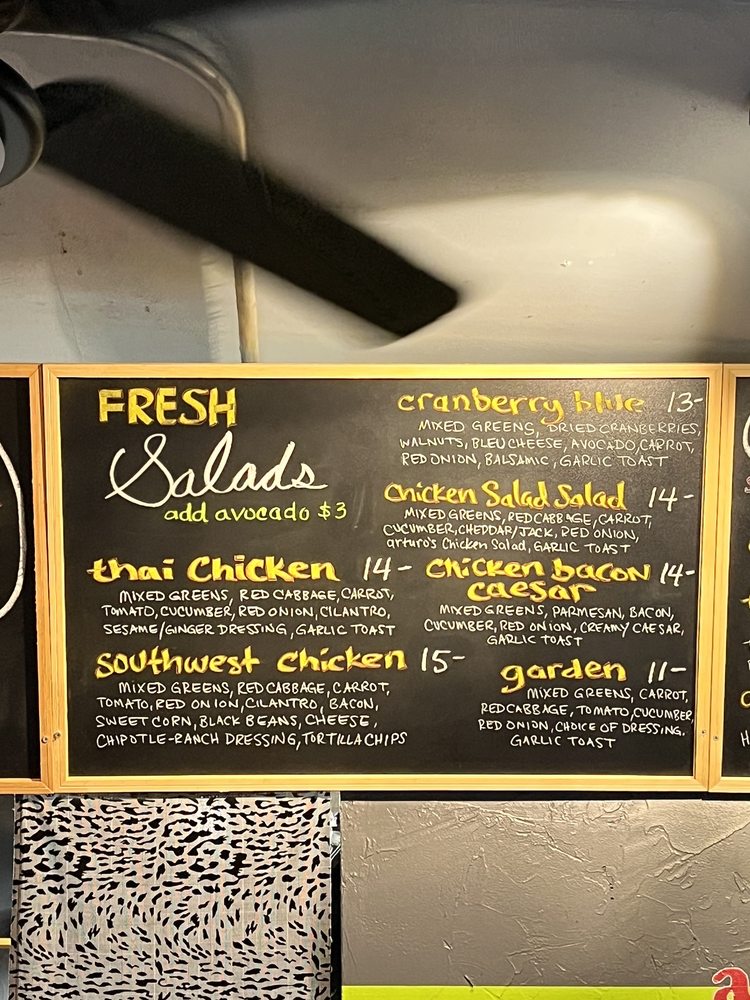 FRESH
Salads
add avocado $3
thai Chicken 14-
MIXED GREENS, RED CABBAGE, CARROT,
TOMATO, CUCUMBER, RED ONION, CILANTRO,
SESAME/GINGER DRESSING, GARLIC TOAST
southwest chicken 15-
MIXED GREENS, RED CABBAGE, CARROT,
TOMATO, RED ONION, CILANTRO, BACON,
SWEET CORN, BLACK BEANS, CHEESE,
CHIPOTLE-RANCH DRESSING, TORTILLA CHIPS
cranberry blue 13-
MIXED GREENS, DRIED CRANBERRIES,
WALNUTS, BLEU CHEESE, AVOCADO, CARROT,
RED ONION, BALSAMIC, GARLIC TOAST
Chicken Salad Salad 14-
MIXED GREENS, RED CABBAGE, CARROT,
CUCUMBER, CHEDDAR/JACK, RED ONION,
arturo's Chicken Salad, GARLIC TOAST
Chicken bacon 14-
caesar
MIXED GREENS, PARMESAN, BACON,
CUCUMBER, RED ONION, CREAMY CAESAR,
GARLIC TOAST
garden 11-
MIXED GREENS, CARROT,
RED CABBAGE, TOMATO, CUCUMBER,
RED ONION, CHOICE OF DRESSING,
GARLIC TOAST